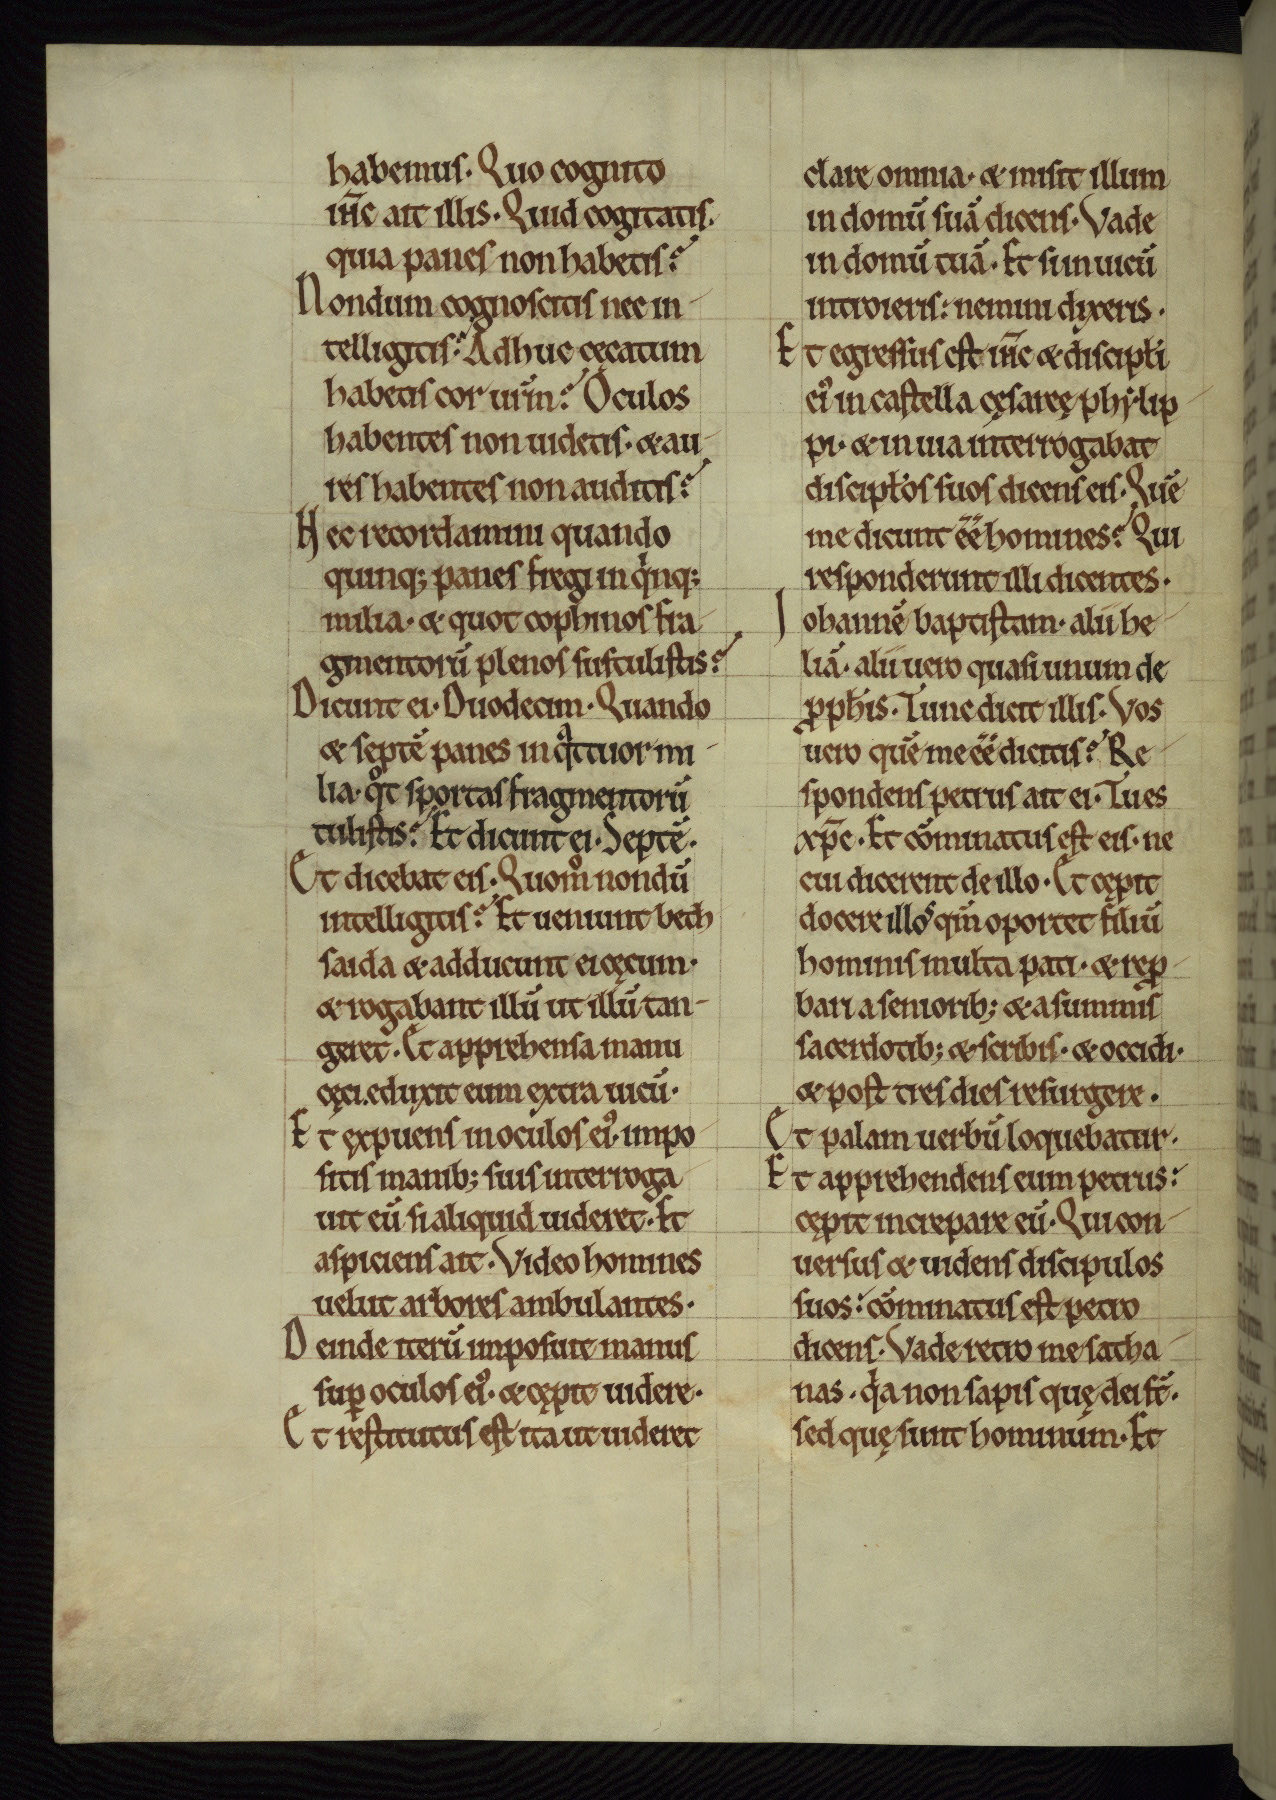 habemus. Quo cognito
ih̅c ait illis. Quid cogitatis.
quia panes non habetis?
Nondum cognoscitis nec in-
telligitis? Adhuc cęcatum
habetis cor ur̅m? Oculos
habentes non uidetis. & au-
res habentes non auditis?
Hec recordamini quando
quinq; panes fregi in qinq;
milia. & quot cophinos fra-
gmentorū plenos sustulistis?
Dicunt ei. Duodecim. Quando
& septē panes in qattuor mi-
lia. qot sportas fragmentorū
tulistis? Et dicunt ei. Septē.
Et dicebat eis. Quomo nondū
intelligitis? Et ueniunt beth
saida & adducunt ei cęcum.
& rogabant illū ut illū tan-
geret. Et apprehensa manu
cęci. eduxit eum extra uicū.
Et expuens in oculos ei⁹. impo-
sitis manib; suis interroga-
uit eū si aliquid uideret. Et
aspiciens ait. Video homines
uelut arbores ambulantes.
Deinde iterū imposuit manus
sup̲ oculos ei⁹. & cępit uidere.
Et restitutus est ita ut uideret
clare omnia. & misit illum
in domū suā dicens. Vade
in domū tuā. Et si in uicū
introieris: nemini dixeris.
Et egressus est ih̅c & discipłi
ei⁹ in castella cęsareę phylip-
pi. & in uia interrogabat
discipłos suos dicens eis. Quē
me dicunt ēē homines? Qui
responderunt illi dicentes.
Iohannē baptistam. alii he-
liā. alii uero quasi unum de
ꝓph̅is. Tunc dicit illis. Vos
uero quē me ēē dicitis? Re-
spondens petrus ait ei. Tu es
xp̅c. Et cōminatus est eis. ne
cui dicerent de illo. Et cępit
docere illos qm̅ oportet filiū
hominis multa pati. & reꝓ-
bari a seniorib; & a summis
sacerdotib; & scribis. & occidi.
& post tres dies resurgere.
Et palam uerbū loquebatur.
Et apprehendens eum petrus:
cępit increpare eū. Qui con-
uersus & uidens discipulos
suos: cōminatus est petro
dicens. Vade retro me satha-
nas. qia non sapis quę dei st̅.
sed quę sunt hominum. Et